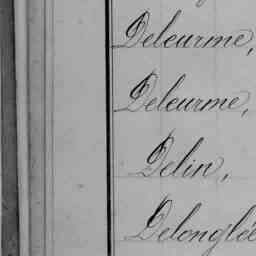 Deleurme,
Deleurme,
Delin,
Delonglée